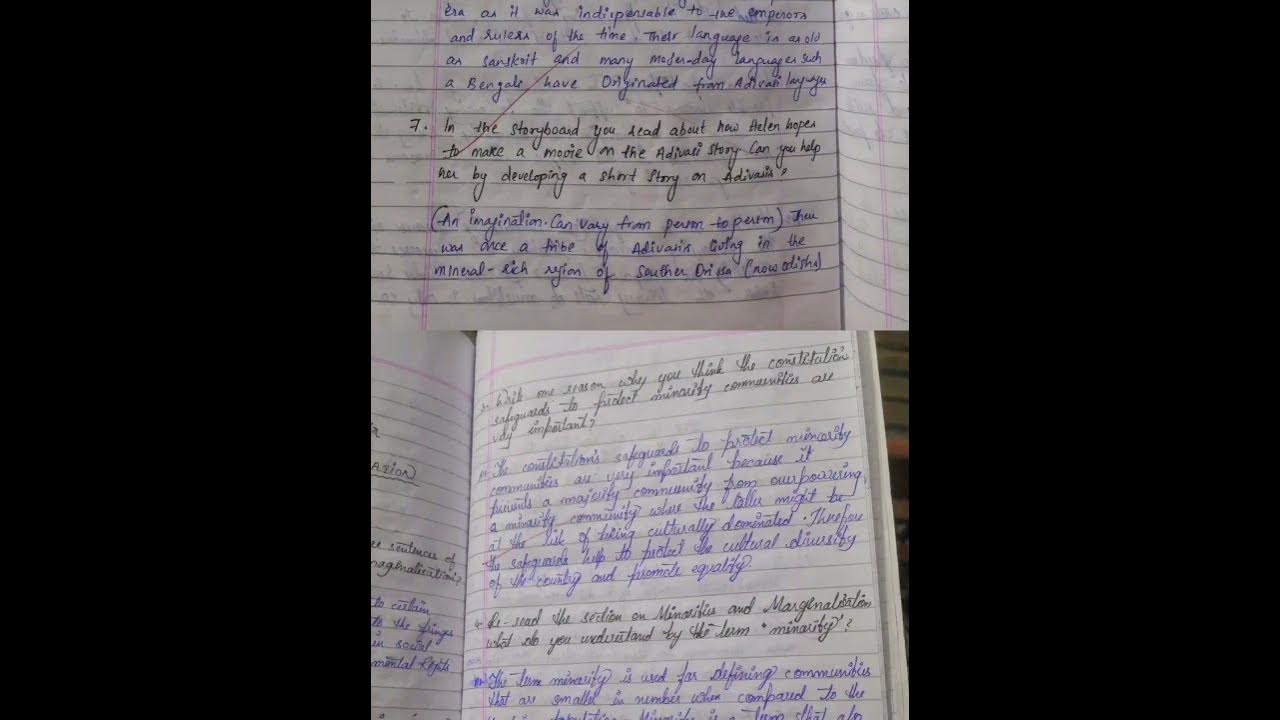 era as it was indispensable to the emperors
and rulers of the time. Their language is as old
as sanskrit and many moder-day languages such
a Bengali have Originated from Adivasi languages
7. In the storyboard you read about how Helen hopes
to make a movie on the Adivasi story Can you help
her by developing a short story on Adivasis?
(An imagination. Can vary from person to person) Then
was once a tribe of Adivasis living in the
mineral-rich region of Souther Orissa (now odisha)
3. Write one reason why you think the constitution
safeguards to protect minority communities are
very important?
The constitution's safeguards to protect minority
communities are very important because it
prevents a majority community from overpowering
a minority community where the latter might be
at the risk of being culturally dominated. Therefore
the safeguards help to protect the cultural diversity
of the country and promote equality.
4. Re-read the section on Minorities and Marginalisation
what do you understand by the term "minority"?
The term minority is used for defining communities
that are smaller in number when compared to the
Minority is a term that also
sentences of
marginalisation?
to certain
to the fringes
in social
mental Rights